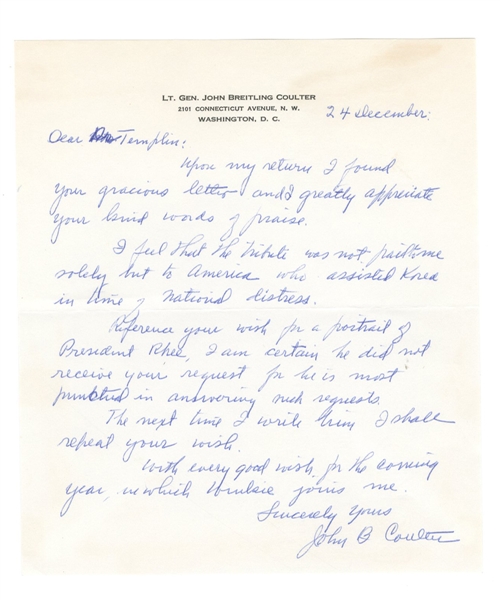 LT. GEN. JOHN BREITLING COULTER
2101 CONNECTICUT AVENUE, N. W.
WASHINGTON, D. C.
24 December:
Dear Templin:
Upon my return I found
your gracious letter and I greatly appreciate
your kind words of praise.
I feel that the Tribute was not paid to me
solely but to America who assisted Korea
in time of national distress.
Reference your wish for a portrait of
President Rhee, I am certain he did not
receive your request for he is most
punctual in answering such requests.
The next time I write him I shall
repeat your wish.
With every good wish for the coming
year, in which joins me.
Sincerely Yours
John B Coulter